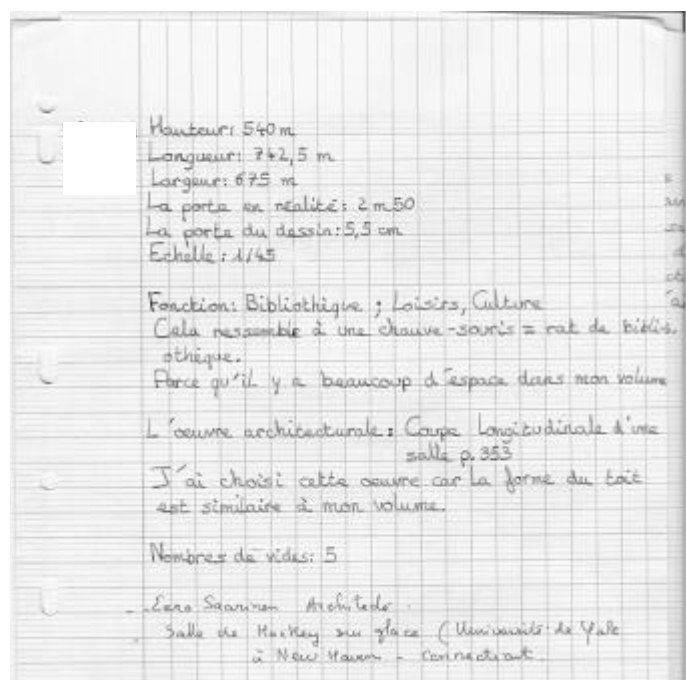 Hauteur: 540 m
Longueur: 742,5 m
Largeur: 675 m
La porte en réalité: 2 m 50
La porte du dessin: 5,5 cm
Echelle: 1/45
Fonction: Bibliothique ; Loisirs, Culture
Cela ressemble à une chauve-souris = rat de biblio.
othèque.
Parce qu'il y a beaucoup d'espace dans mon volume
L'oeuvre architecturale: Coupe Longitudinale d'une
salle p.353
J'ai choisi cette oeuvre car la forme du toit
est similaire à mon volume.
Nombres de vides: 5
- Eero Saarinen Architecte.
Salle de Hockey sur glace (Université de Yale
à New Haven - Connecticut